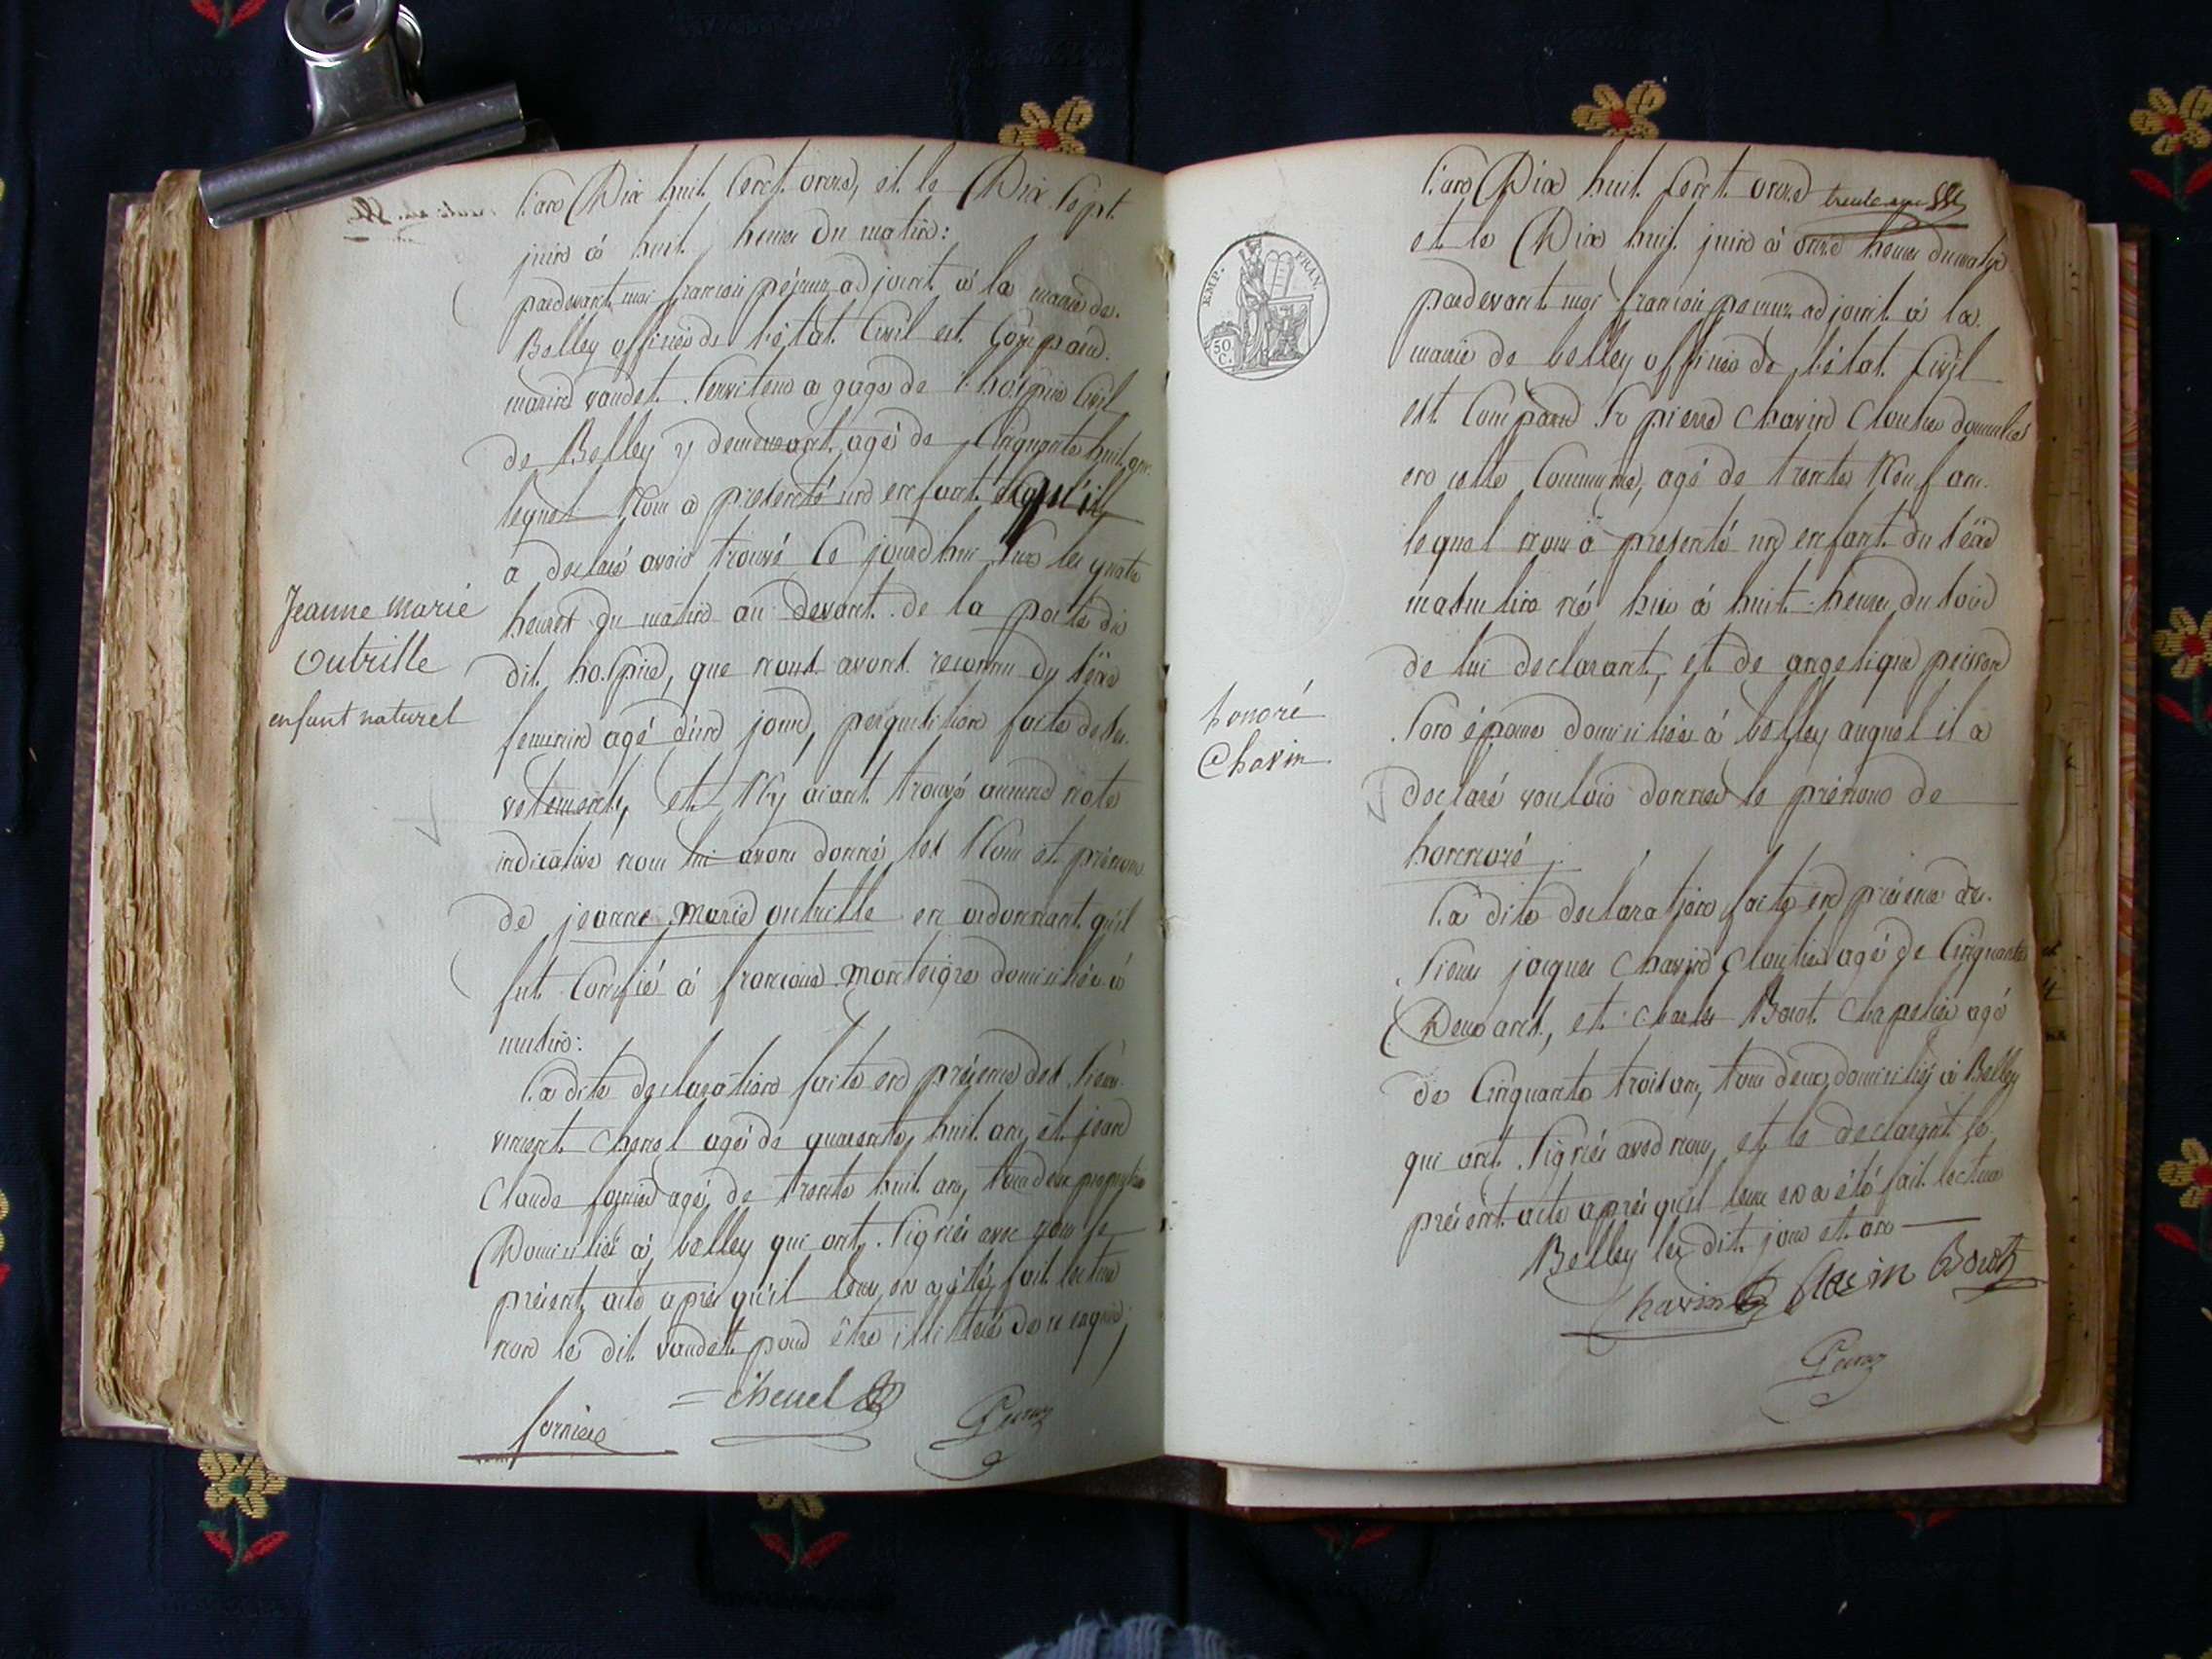 l'an Dix huit Cent onze, et le Dix Sept
juin à huit heures du matin:
pardevant moi françois peysson adjoint à la mairie de
Belley officier de l'état Civil est Comparu
vaudet Serviteur a gage de l'hospice Civil
de Belley y demeurant, agé de Cinquante huit ans
lequel Nous a presenté un enfant qu'il
a declaré avoir trouvé Ce jourd'hui Sur les quatre
heures du matin au devant de la porte du
dit hospice, que nous avons reconnu du séxe
feminin agé d'un jour, perquisition faite de ses
vetements, et N'y aiant trouvé aucune note
indicative nous lui avons donné les Nom et prénoms
de jeanne marie outrille en ordonnant qu'il
fut Confié à françoise domiciliée à
La dite declaration faite en présence des Sieurs
vincent Chenel agé de quarente huit ans, et jean
Claude fornier agé de trente huit ans, tous deux
Domiciliés à belley qui ont Signés avec nous le
présent acte après qu'il leur en a été fait lecture
non le dit vaudet pour être illitteré de ce enquis,
fornier
Chenel
Jeanne marie
Outrille
enfant naturel
l'an Dix huit Cent onze
et le Dix huit juin à onze heures du matin
pardevant moi françois adjoint à la
mairie de belley officier de l'état Civil
est Comparu Sr pierre Chavin Cloutier domicilié
en cette Commune, agé de trente Neuf ans
lequel nous a presenté un enfant du séxe
masculin né hier à huit heures du soir
de lui declarant, et de angelique
Son épouse domiciliée à belley auquel il a
declaré vouloir donner le prénom de
honnoré
La dite declaration faite en présence des
Sieurs jacques Chavin Cloutier agé de Cinquante
Deux ans, et charles Borot Chapelier agé
de Cinquante trois ans, tous deux domiciliés à Belley
qui ont Signés avec nous, et le declarant le
présent acte après qu'il leur en a été fait lecture
Belley les dit jour et an
Chavin Chavin Borot
honoré
Chavin
EMP. FRAN.
50
C.